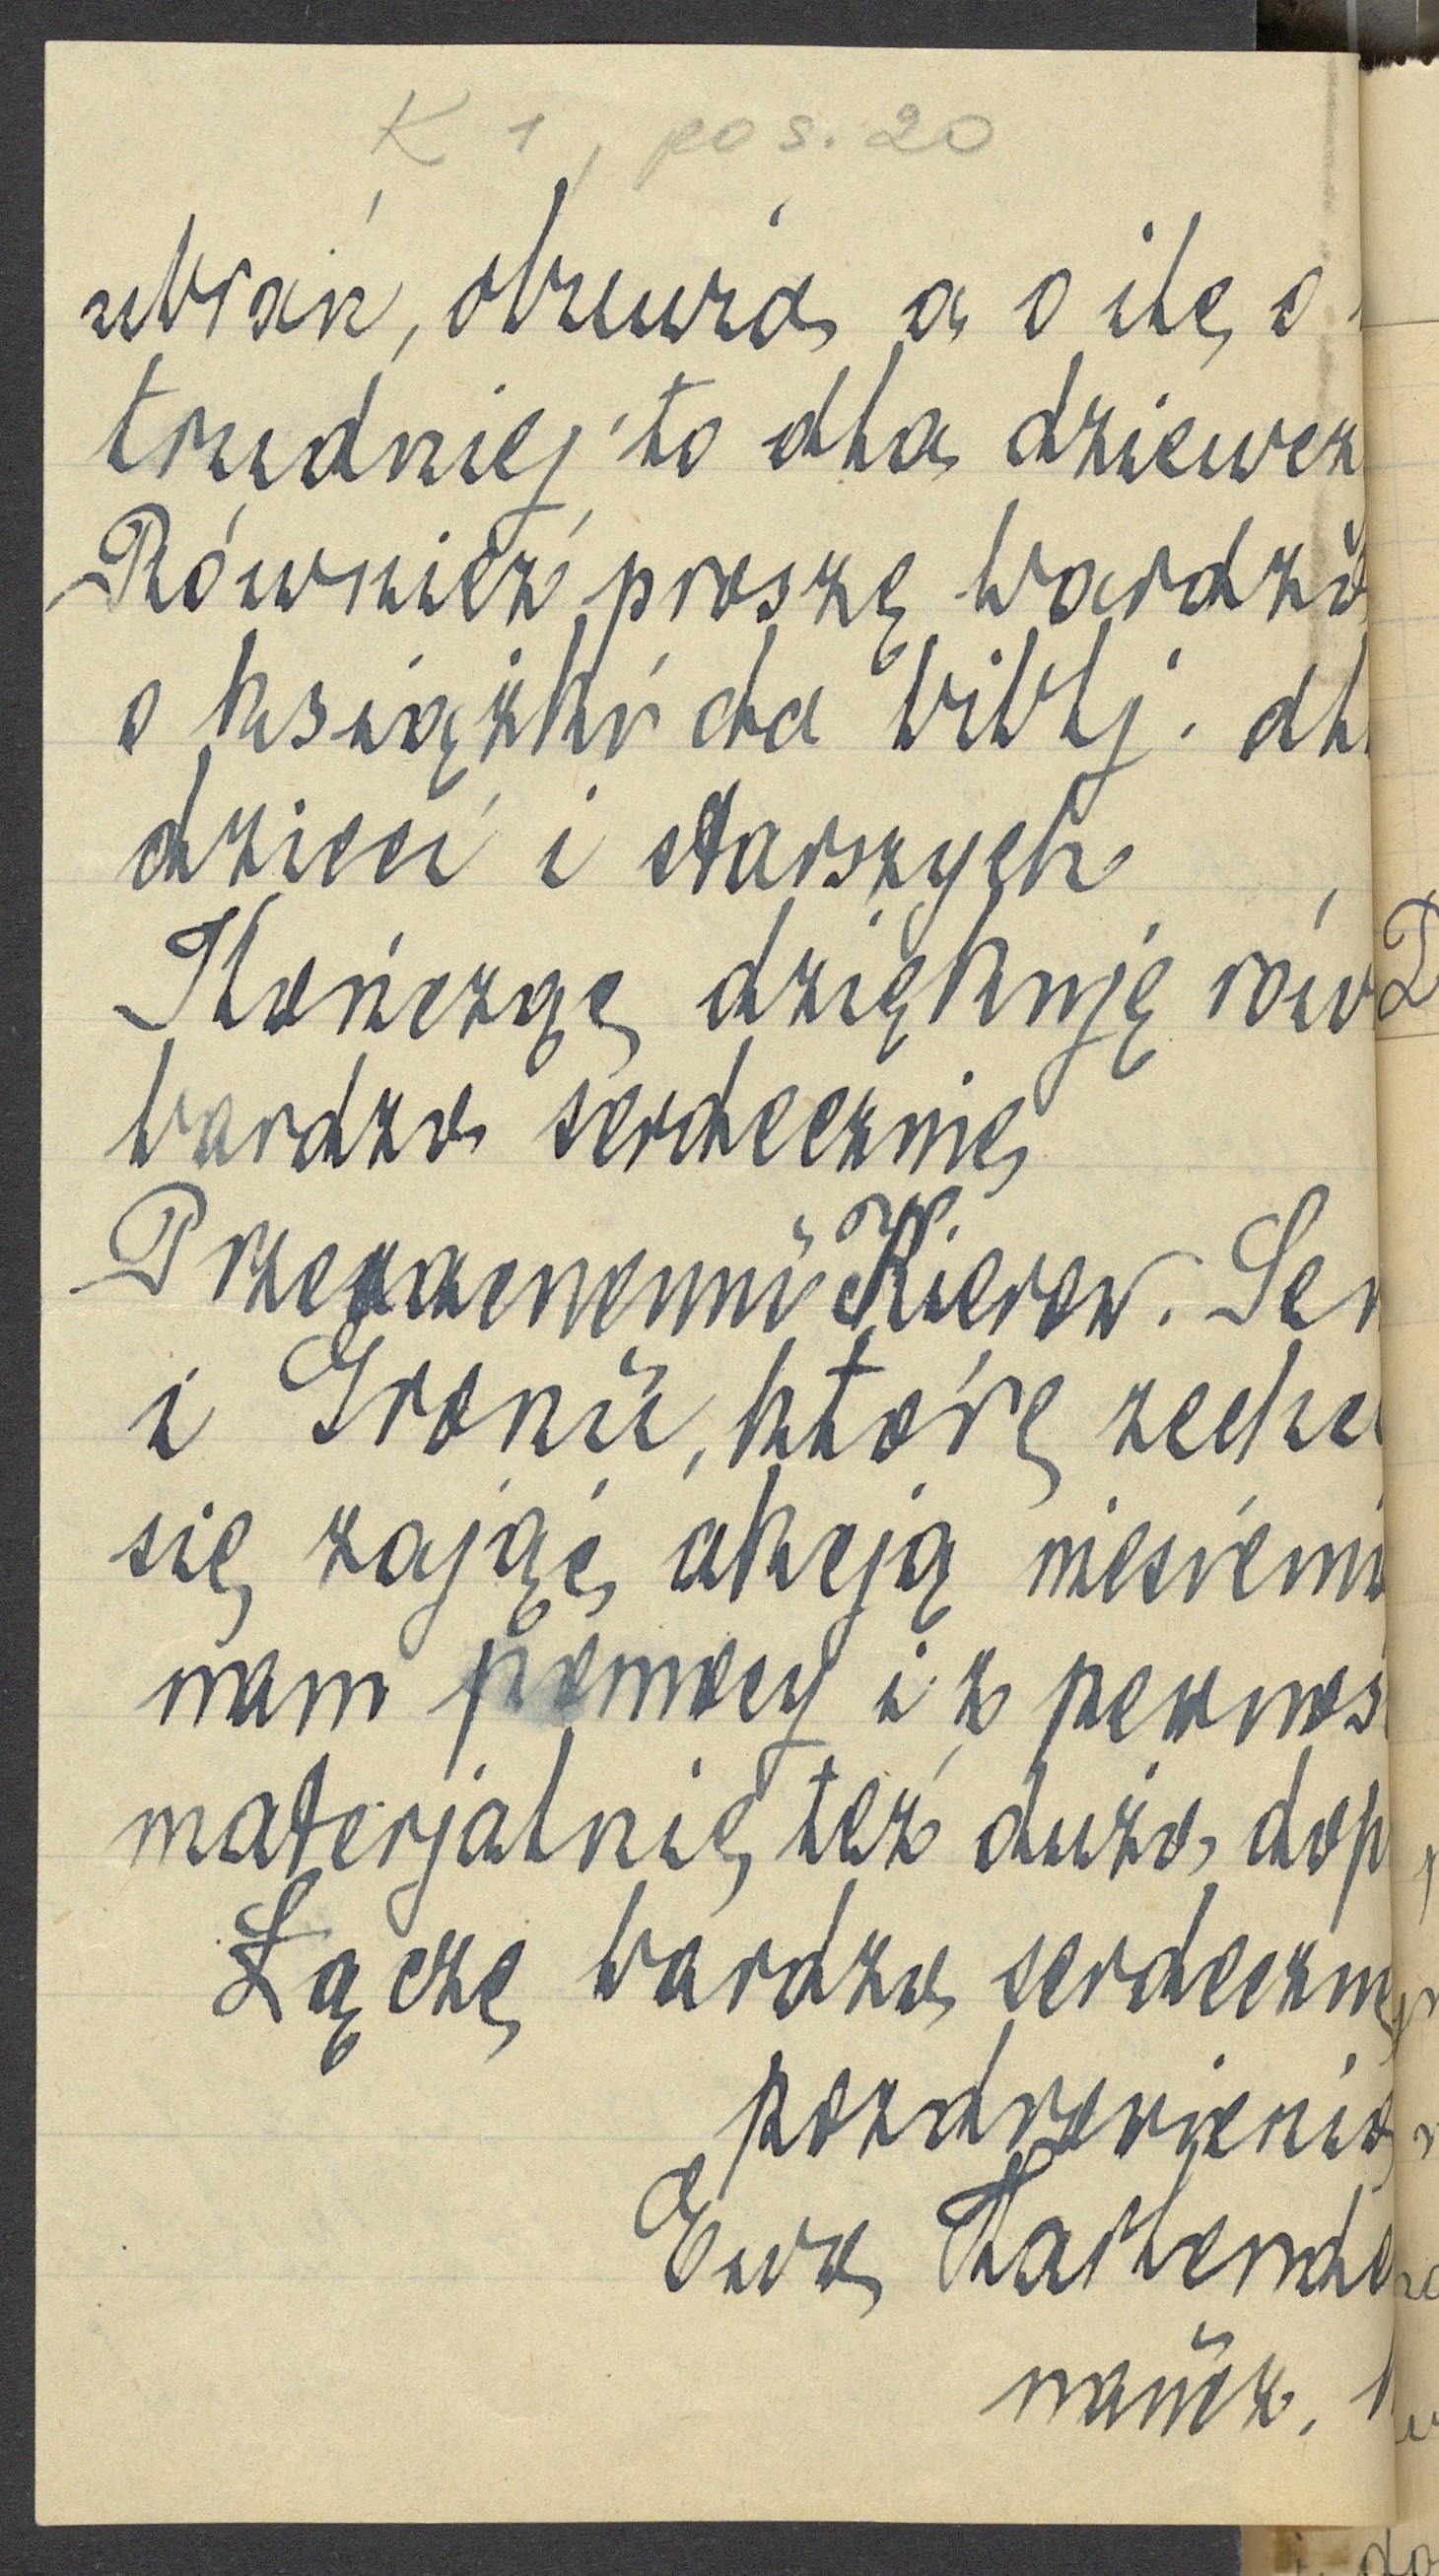 K 1, pos. 20
ubrań, obuwia a o ile o
trudniej to dla dziewcz
Również proszę bardzo
o książki dla biblj. dla
dzieci i starszych
Kończąc dziękuję rów
bardzo serdecznie
Przezacnemu Kierow. Sem
i Gronu, które zechc
się zająć akcją niesieni
nam pomocy i z pewnoś
materjalnie też dużo dop
Łączę bardzo serdeczne
pozdrowienia
Ewa
naucz.